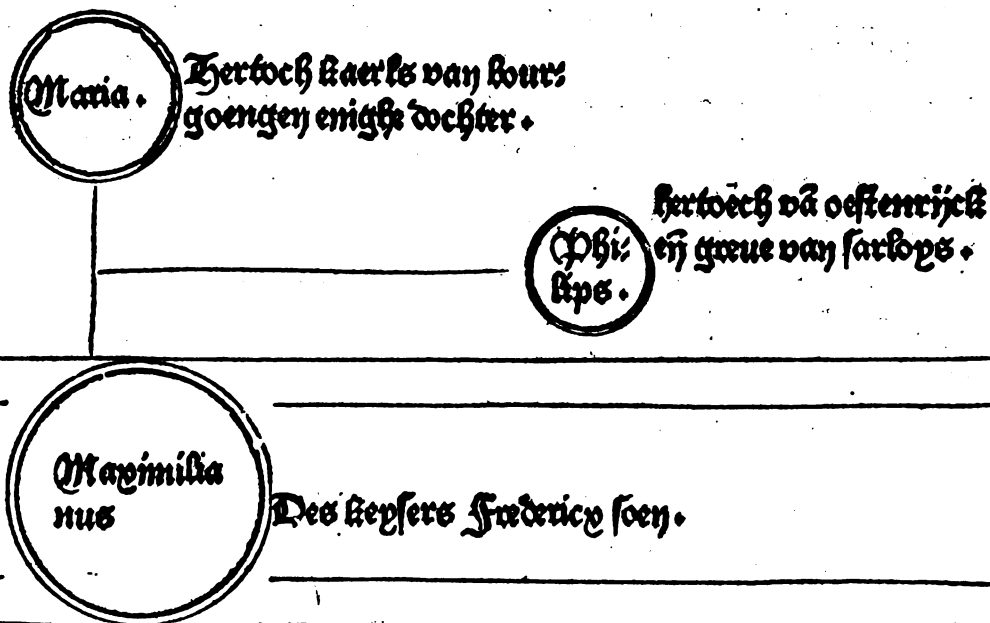 Maria.
Hertoch kaerls van bour⸗
goengen enighe dochter.
hertoech vā oestenrijck
Phi⸗
lips.
eñ greue van sarloys.
Maximilia
nus
Des keysers Fredericx soen.